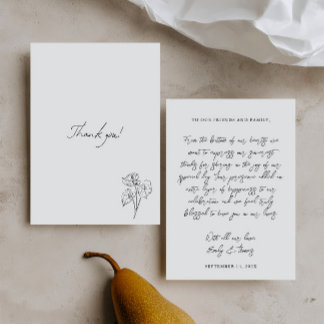 Thank you!
TO OUR FRIENDS AND FAMILY,
From the bottom of our hearts we
want to express our sincerest
thanks for sharing in the joy of our
special day. Your presence added an
extra layer of happiness to our
celebration and we feel truly
blessed to have you in our lives.
With all our love
Emily & Thomas
SEPTEMBER 11, 2025